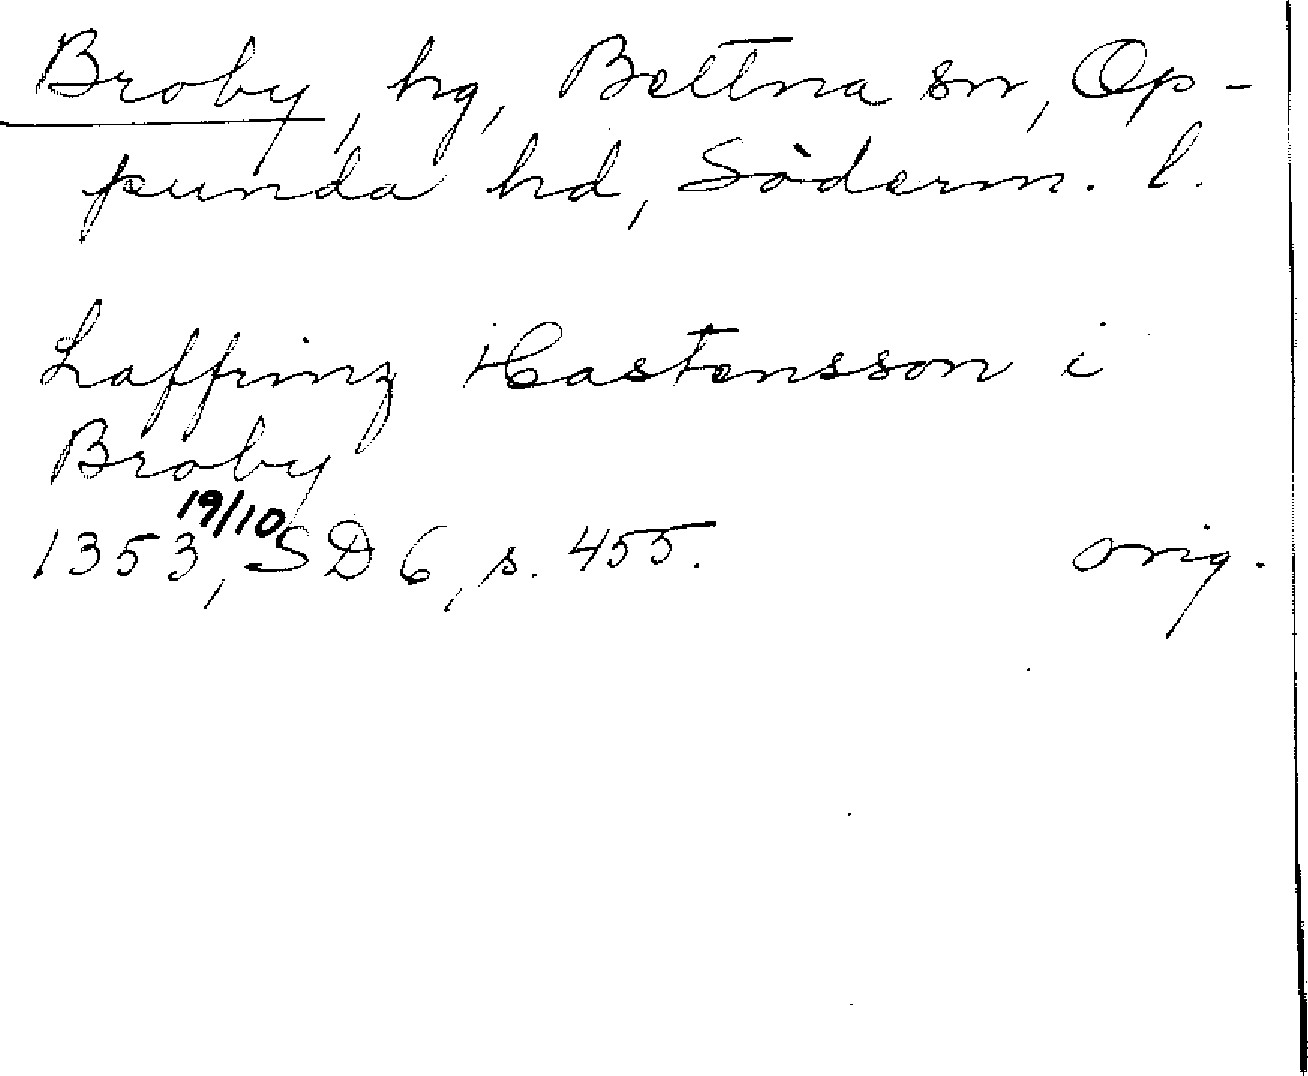 Broby, hg, Bettna sn, Op-
punda hd, Söderm. l.
Laffrinz Hastensson i
Broby
1353 19/10, SD 6, s. 455. orig.